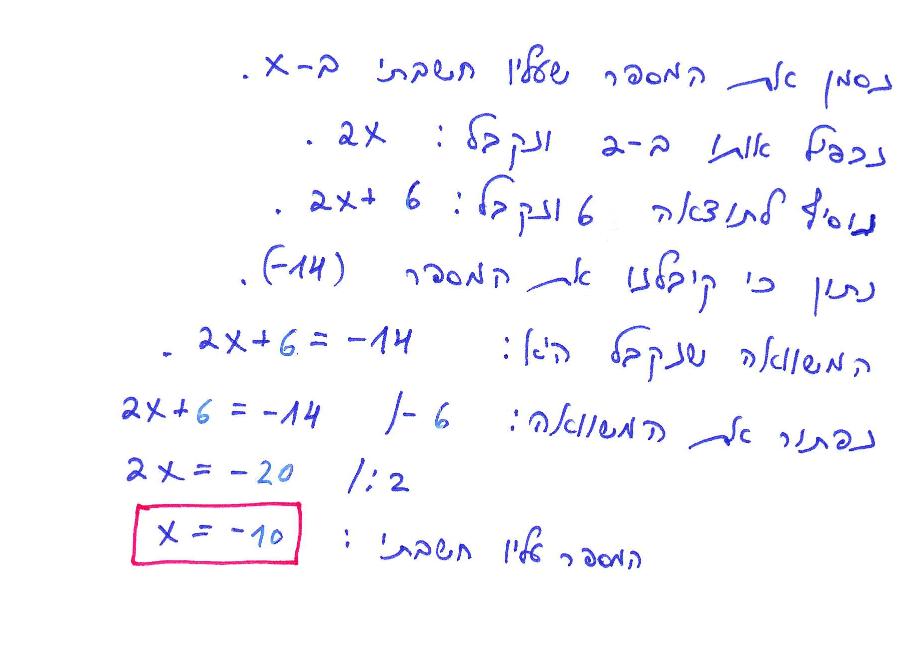 נסמן את המספר שעליו חשבתי ב-x.
נכפיל אותו ב-2 ונקבל: 2x.
נוסיף לתוצאה 6 ונקבל: 2x+ 6.
נתון כי קיבלנו את המספר (-14).
המשוואה שנקבל היא: 2x+6 = -14.
נפתור את המשוואה: 2x+6 = -14 /- 6
2x = -20 /:2
המספר עליו חשבתי: x = -10